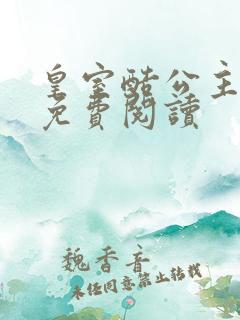 皇室酷公主
免費閱讀
魏香音
未經同意禁止轉載